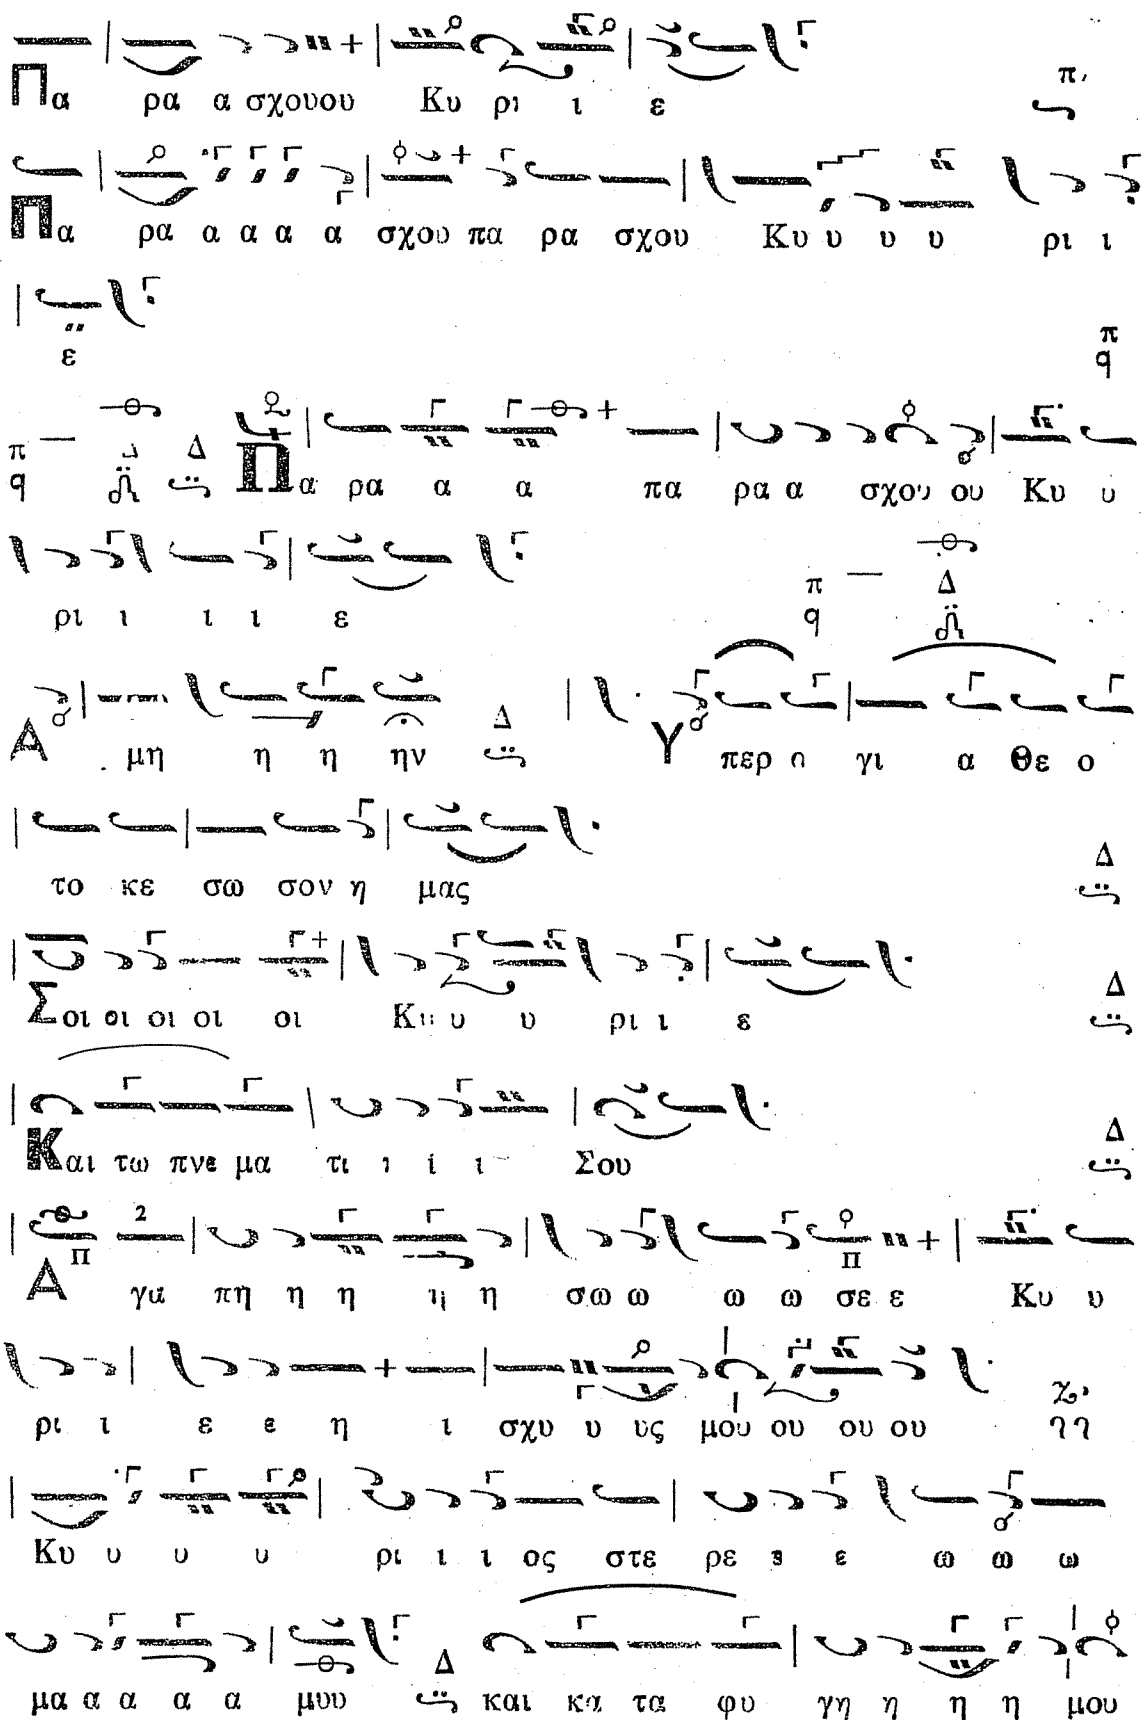 Πα ρα α σχουου Κυ ρι ι ε π
Πα ρα α α α α σχου πα ρα σχου Κυ υ υ υ ρι ι
ε π q
π q Δ Πα ρα α α πα ρα α σχου ου Κυ υ
ρι ι ι ι ε π q Δ
Α μη η η ην Δ Υ περ α γι α Θε ο
το κε σω σον η μας Δ
Σοι οι οι οι οι Κυ υ υ υ ρι ι ε Δ
Και τω πνε μα τι ι ι ι Σου Δ
Α γα πη η η η η σω ω ω ω σε ε Κυ υ
ρι ι ε ε η ι σχυ υ υς μου ου ου ου
Κυ υ υ υ ρι ι ι ος στε ρε ε ε ω ω ω
μα α α α α μυυ Δ και κα τα φυ γη η η η μου